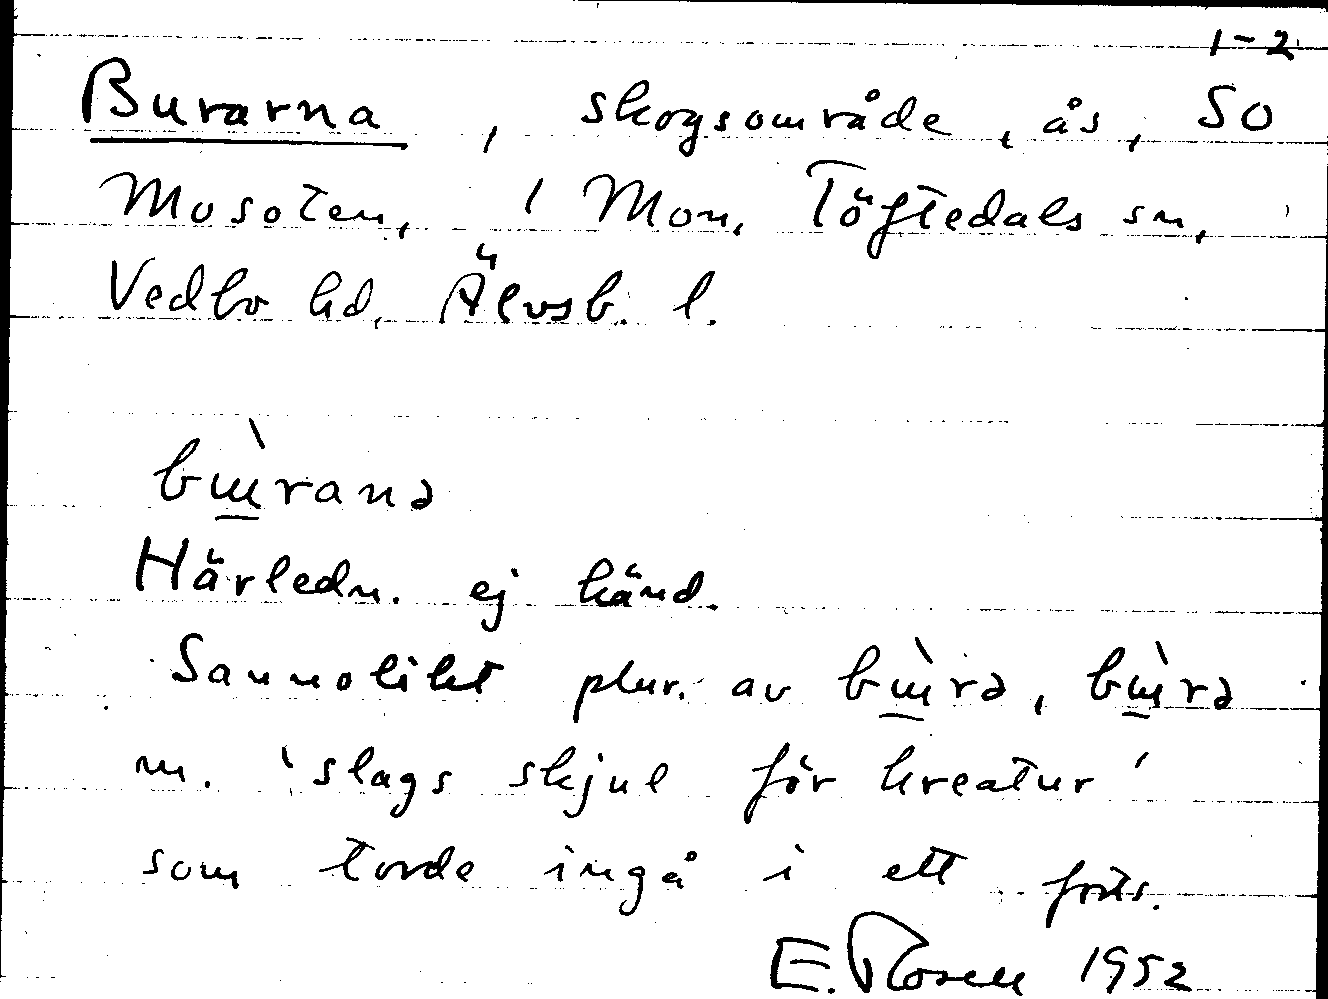 1-2
Burarna, skogsområde, ås, SO
Mosoten, 1 Mon, Töftedals sn,
Vedbo hd, Älvsb. l.
bɯ̀ranə
Härledn. ej känd.
Sannolikt plur. av bɯ̀rə, bɯ̀rə
m. 'slags skjul för kreatur'
som torde ingå i ett forts.
E. Rosell 1952